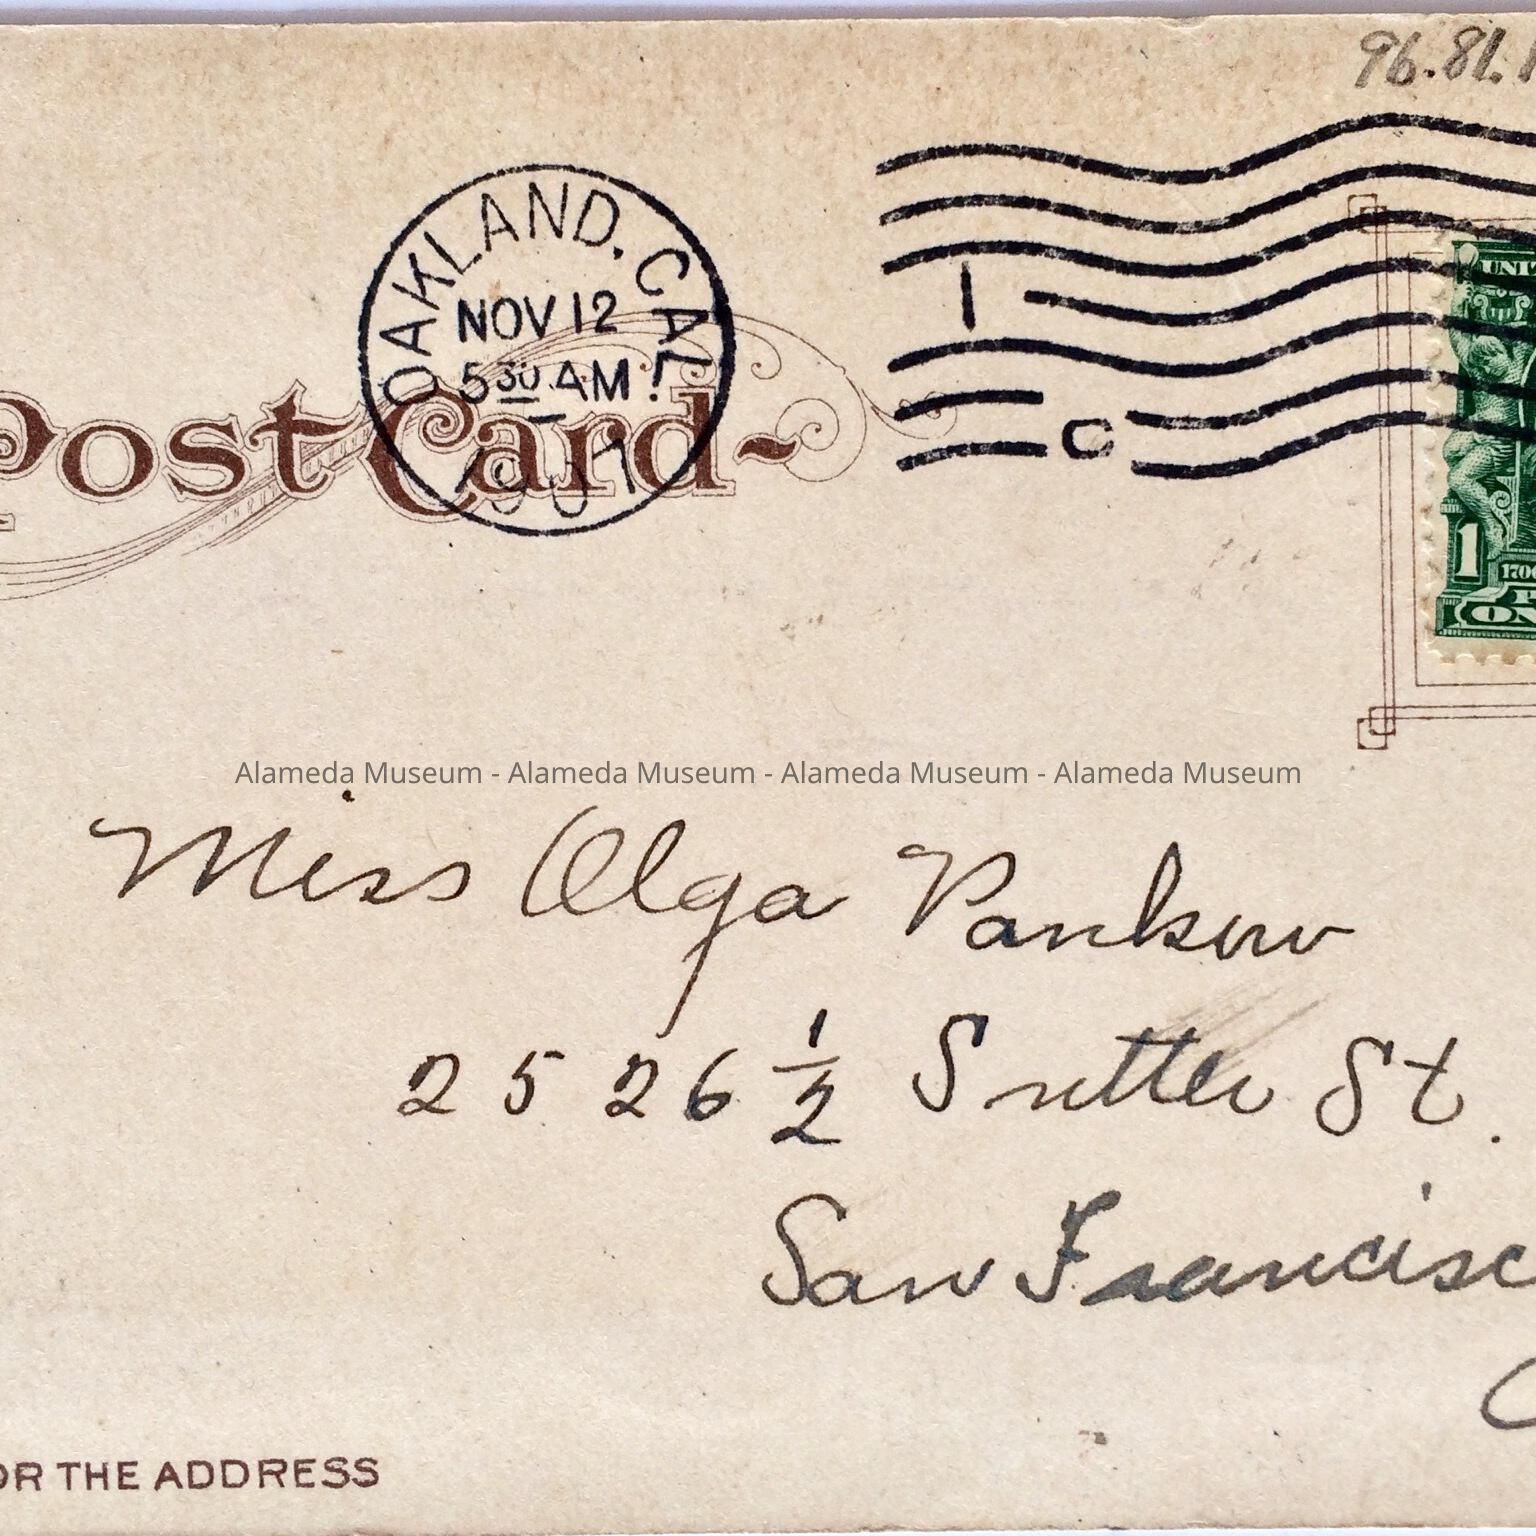 96.81.1
OAKLAND, CAL.
NOV 12
5 30 AM
1907
1
C
UNIT
1
ON
Post Card
Alameda Museum - Alameda Museum - Alameda Museum - Alameda Museum
Miss Olga Pankow
2526 ½ Sutter St.
San Francisc
OR THE ADDRESS